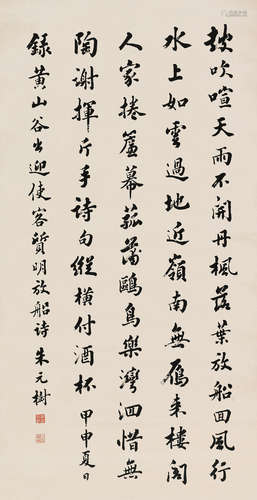 鼓吹喧天雨不開丹楓落葉放船回風行
水上如雲過地近嶺南無雁來樓閣
人家捲簾幕菰蒲鷗鳥樂灣洄惜無
陶謝揮斤手詩句縱橫付酒杯 甲申夏日
錄黃山谷出迎使客質明放船詩 朱元樹